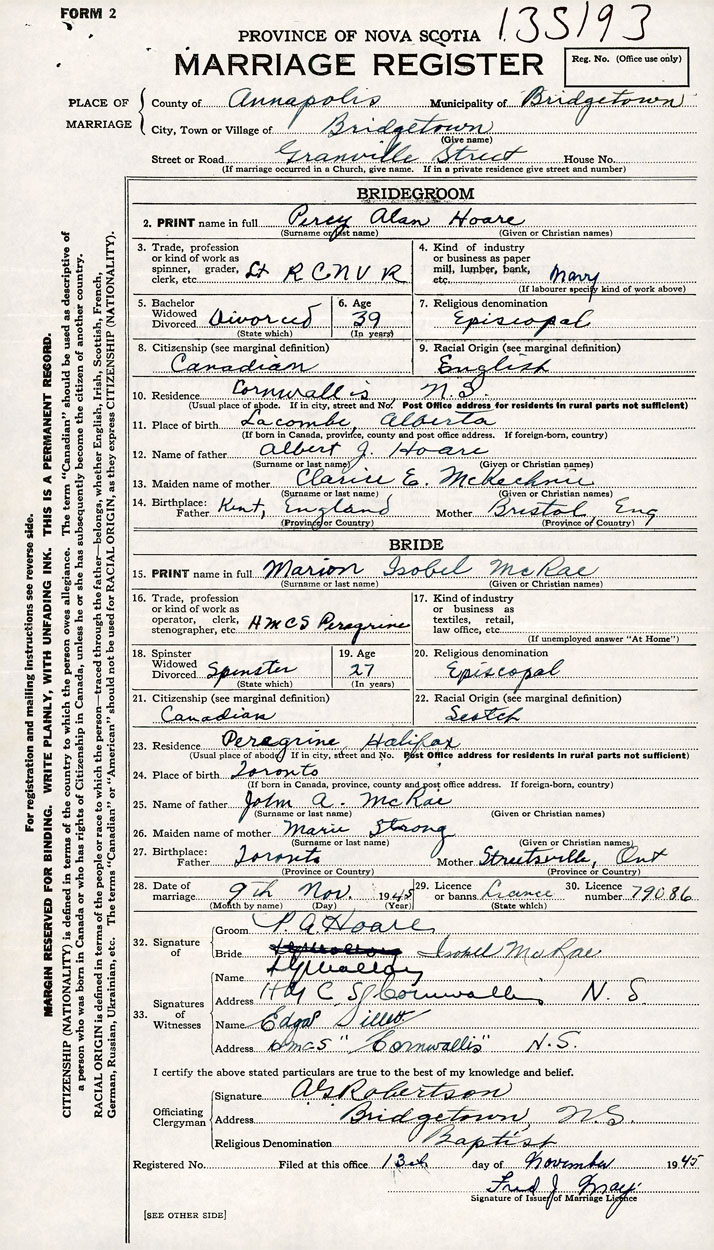 FORM 2
135193
PROVINCE OF NOVA SCOTIA
MARRIAGE REGISTER
Reg. No. (Office use only)
PLACE OF MARRIAGE
County of Annapolis Municipality of Bridgetown
City, Town or Village of Bridgetown
(Give name)
Street or Road Granville Street House No.
(If marriage occurred in a Church, give name. If in a private residence give street and number)
BRIDEGROOM
2. PRINT name in full Percy Alan Hoare
(Surname or last name) (Given or Christian names)
3. Trade, profession or kind of work as spinner, grader, clerk, etc. Lt R C N V R
4. Kind of industry or business as paper mill, lumber, bank, etc. Navy
(If labourer specify kind of work above)
5. Bachelor Widowed Divorced Divorced
(State which)
6. Age 39
(In years)
7. Religious denomination Episcopal
8. Citizenship (see marginal definition) Canadian
9. Racial Origin (see marginal definition) English
10. Residence Cornwallis N.S.
(Usual place of abode. If in city, street and No. Post Office address for residents in rural parts not sufficient)
11. Place of birth Lacombe, Alberta
(If born in Canada, province, county and post office address. If foreign-born, country)
12. Name of father Albert J. Hoare
(Surname or last name) (Given or Christian names)
13. Maiden name of mother Clarice E. McKechnie
(Surname or last name) (Given or Christian names)
14. Birthplace: Father Kent, England Mother Bristol, Eng
(Province or Country) (Province or Country)
BRIDE
15. PRINT name in full Marion Isobel McRae
(Surname or last name) (Given or Christian names)
16. Trade, profession or kind of work as operator, clerk, stenographer, etc. HMCS Peregrine
17. Kind of industry or business as textiles, retail, law office, etc.
(If unemployed answer "At Home")
18. Spinster Widowed Divorced Spinster
(State which)
19. Age 27
(In years)
20. Religious denomination Episcopal
21. Citizenship (see marginal definition) Canadian
22. Racial Origin (see marginal definition) Scotch
23. Residence Peregrine, Halifax
(Usual place of abode. If in city, street and No. Post Office address for residents in rural parts not sufficient)
24. Place of birth Toronto
(If born in Canada, province, county and post office address. If foreign-born, country)
25. Name of father John A. McRae
(Surname or last name) (Given or Christian names)
26. Maiden name of mother Marie Strong
(Surname or last name) (Given or Christian names)
27. Birthplace: Father Toronto Mother Streetsville, Ont
(Province or Country) (Province or Country)
28. Date of marriage 9th Nov. 1945
(Month by name) (Day) (Year)
29. Licence or banns Licence
(State which)
30. Licence number 79086
32. Signature of
Groom P. A Hoare
Bride Isobell McRae
33. Signatures of Witnesses
Name
Address H M C S Cornwallis N. S.
Name Edgar Sillett
Address HMCS "Cornwallis" N.S.
I certify the above stated particulars are true to the best of my knowledge and belief.
Officiating Clergyman
Signature A G Robertson
Address Bridgetown, N.S.
Religious Denomination Baptist
Registered No. Filed at this office 13th day of November 1945
Fred J. May
Signature of Issuer of Marriage Licence
[SEE OTHER SIDE]
For registration and mailing instructions see reverse side.
MARGIN RESERVED FOR BINDING. WRITE PLAINLY, WITH UNFADING INK. THIS IS A PERMANENT RECORD.
CITIZENSHIP (NATIONALITY) is defined in terms of the country to which the person owes allegiance. The term "Canadian" should be used as descriptive of
a person who was born in Canada or who has rights of Citizenship in Canada, unless he or she has subsequently become the citizen of another country.
RACIAL ORIGIN is defined in terms of the people or race to which the person—traced through the father—belongs, whether English, Irish, Scottish, French,
German, Russian, Ukrainian, etc. The terms "Canadian" or "American" should not be used for RACIAL ORIGIN, as they express CITIZENSHIP (NATIONALITY).